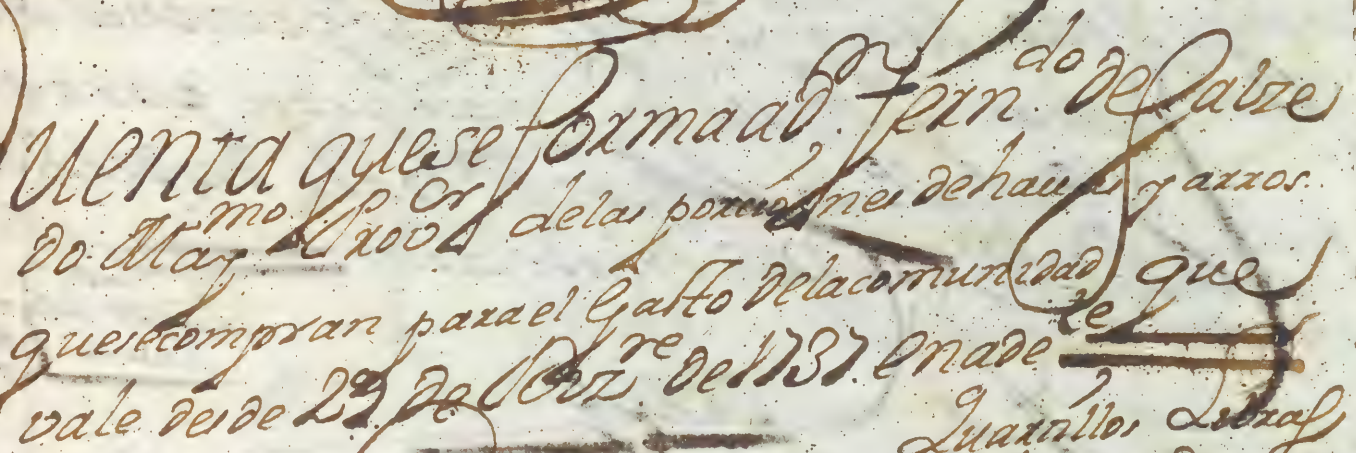 Uenta que se forma a Dⁿ. Fern.do de Salze
do Maymo Prov.or de las porciones de hauas y arros
que se compran para el Gasto de la comunidad que
vale desde 22 de Obre. de 1737. en ade.te
Quartillos Libras